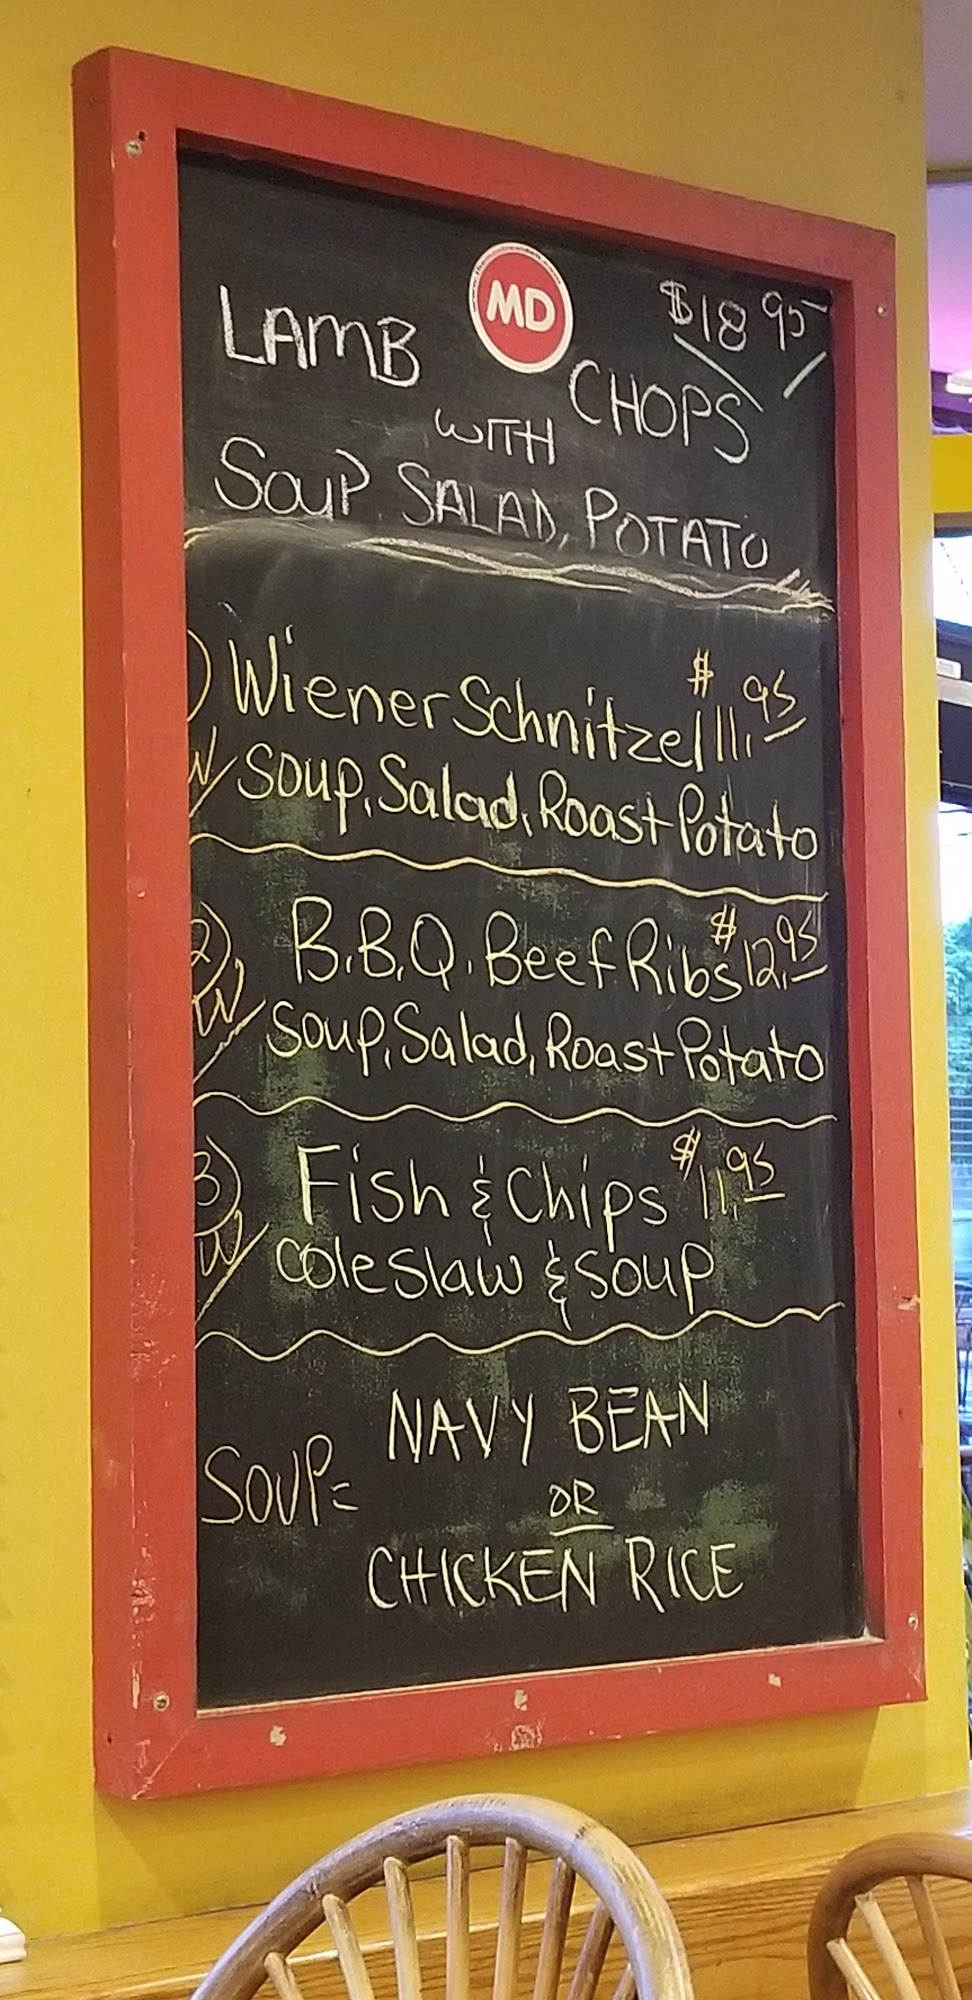 MD
$18 95
LAMB CHOPS
WITH
SOUP SALAD, POTATO
) Wiener Schnitzel $11.95
W/ Soup, Salad, Roast Potato
2) B.B.Q. Beef Ribs $12.95
W/ Soup, Salad, Roast Potato
3) Fish & Chips $11.95
W/ Coleslaw & Soup
SOUP= NAVY BEAN
OR
CHICKEN RICE